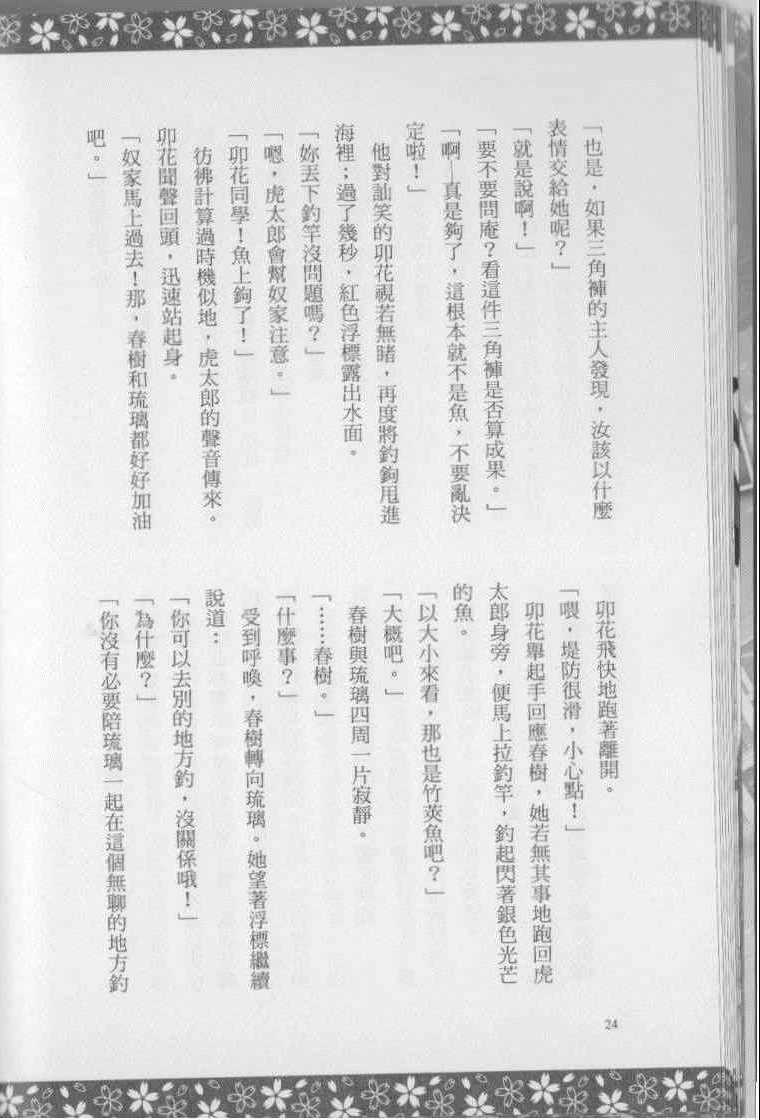 「也是，如果三角褲的主人發現，汝該以什麼
表情交給她呢？」
「就是說啊！」
「要不要問庵？看這件三角褲是否算成果。」
「啊—真是夠了，這根本就不是魚，不要亂決
定啦！」
他對訕笑的卯花視若無睹，再度將釣鉤甩進
海裡；過了幾秒，紅色浮標露出水面。
「妳丟下釣竿沒問題嗎？」
「嗯，虎太郎會幫奴家注意。」
「卯花同學！魚上鉤了！」
彷彿計算過時機似地，虎太郎的聲音傳來。
卯花聞聲回頭，迅速站起身。
「奴家馬上過去！那，春樹和琉璃都好好加油
吧。」
卯花飛快地跑著離開。
「喂，堤防很滑，小心點！」
卯花舉起手回應春樹，她若無其事地跑回虎
太郎身旁，便馬上拉釣竿，釣起閃著銀色光芒
的魚。
「以大小來看，那也是竹莢魚吧？」
「大概吧。」
春樹與琉璃四周一片寂靜。
「……春樹。」
「什麼事？」
受到呼喚，春樹轉向琉璃。她望著浮標繼續
說道：
「你可以去別的地方釣，沒關係哦！」
「為什麼？」
「你沒有必要陪琉璃一起在這個無聊的地方釣
24